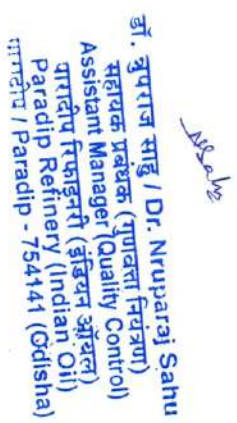 NSahu
डॉ. नृपराज साहू / Dr. Nruparaj Sahu
सहायक प्रबंधक (गुणवत्ता नियंत्रण)
Assistant Manager (Quality Control)
पारादीप रिफाइनरी (इंडियन ऑयल)
Paradip Refinery (Indian Oil)
पारादीप / Paradip - 754141 (Odisha)